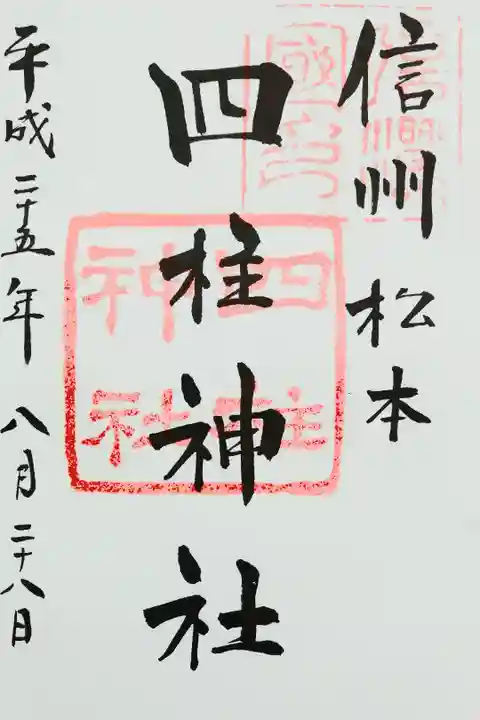 信州 松本
四柱神社
平成二十五年 八月二十八日
四柱
神社